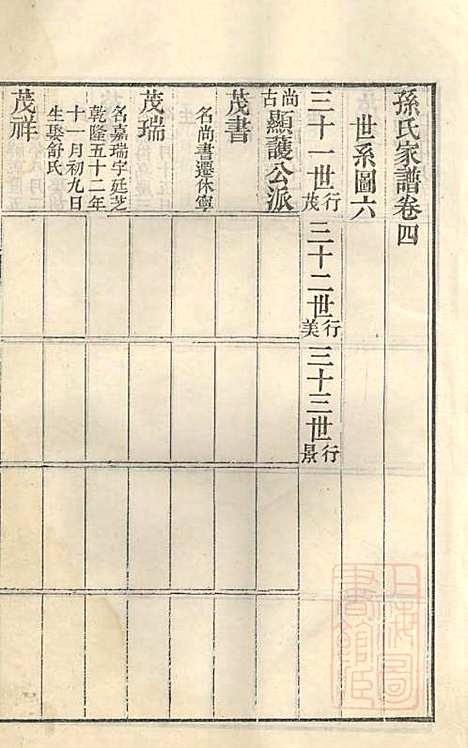 孫氏家譜卷四
世系圖六
三十一世行茂
三十二世行美
三十三世行景
尚古顯護公派
茂書
名尚書遷休寧
茂瑞
名嘉瑞字廷芝
乾隆五十二年
十一月初九日
生娶舒氏
茂祥
上海圖書館藏